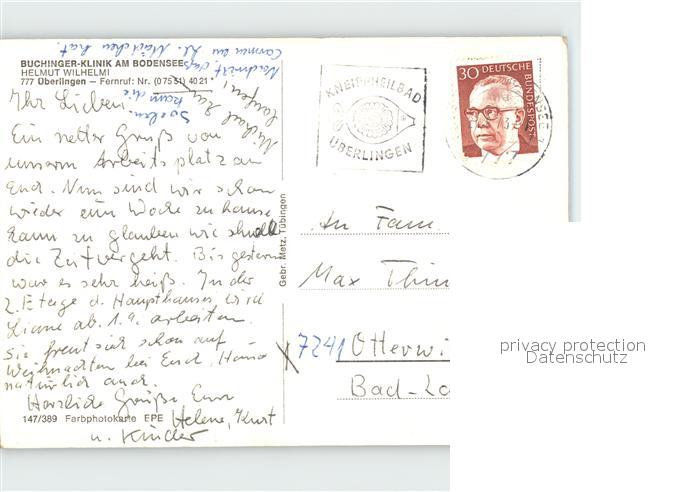 BUCHINGER-KLINIK AM BODENSEE
HELMUT WILHELMI
777 Überlingen – Fernruf: Nr. (0 75 51) 40 21
Ihr Lieben
Ein netter Gruß von
unserm Arbeitsplatz an
Euch. Nun sind wir schon
wieder eine Woche zu hause
kaum zu glauben wie schnell
die Zeit vergeht. Bis gestern
war es sehr heiß. In der
2. Etage d. Haupthauses, wird
Liane ab 1.9. arbeiten.
Sie freut sich schon auf
Weihnachten bei Euch,
natürlich auch.
Herzliche Grüße Eure
Helene, Kurt
u. Kinder
147/389 Farbphotokarte EPE
Soeben kam die
Nachricht, das
Carmen ein kl. Mädchen hat.
Gebr. Metz, Tübingen
KNEIPPHEILBAD
ÜBERLINGEN
30 DEUTSCHE BUNDESPOST
777
An Fam
Max
7241 Otterwi
Bad-
privacy protection
Datenschutz